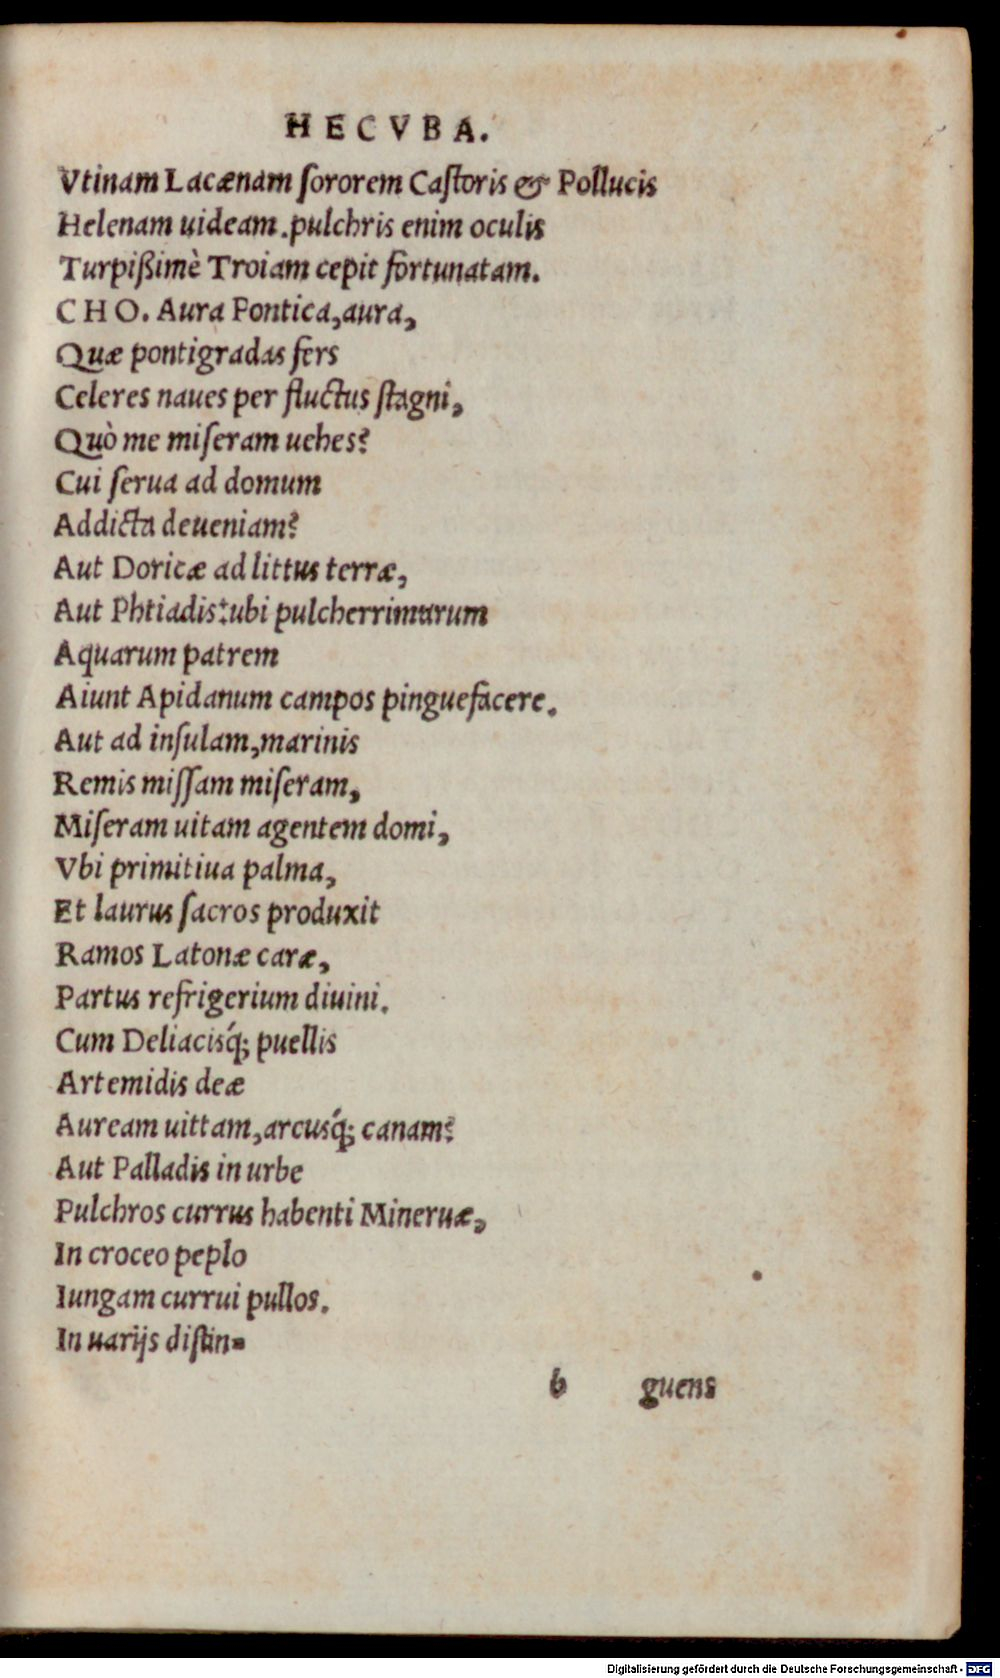 HECVBA.
Vtinam Lacænam ſororem Caſtoris & Pollucis
Helenam uideam.pulchris enim oculis
Turpißimè Troiam cepit fortunatam.
CHO. Aura Pontica,aura,
Quæ pontigradas fers
Celeres naues per fluctus ſtagni,
Quò me miſeram uehes?
Cui ſerua ad domum
Addicta deueniam?
Aut Doricæ ad littus terræ,
Aut Phtiadis:ubi pulcherrimarum
Aquarum patrem
Aiunt Apidanum campos pinguefacere.
Aut ad inſulam,marinis
Remis miſſam miſeram,
Miſeram uitam agentem domi,
Vbi primitiua palma,
Et laurus ſacros produxit
Ramos Latonæ caræ,
Partus refrigerium diuini.
Cum Deliacisq́; puellis
Artemidis deæ
Auream uittam,arcusq́; canam?
Aut Palladis in urbe
Pulchros currus habenti Mineruæ,
In croceo peplo
Iungam currui pullos.
In uarijs diſtin-
b guens
Digitalisierung gefördert durch die Deutsche Forschungsgemeinschaft - DFG